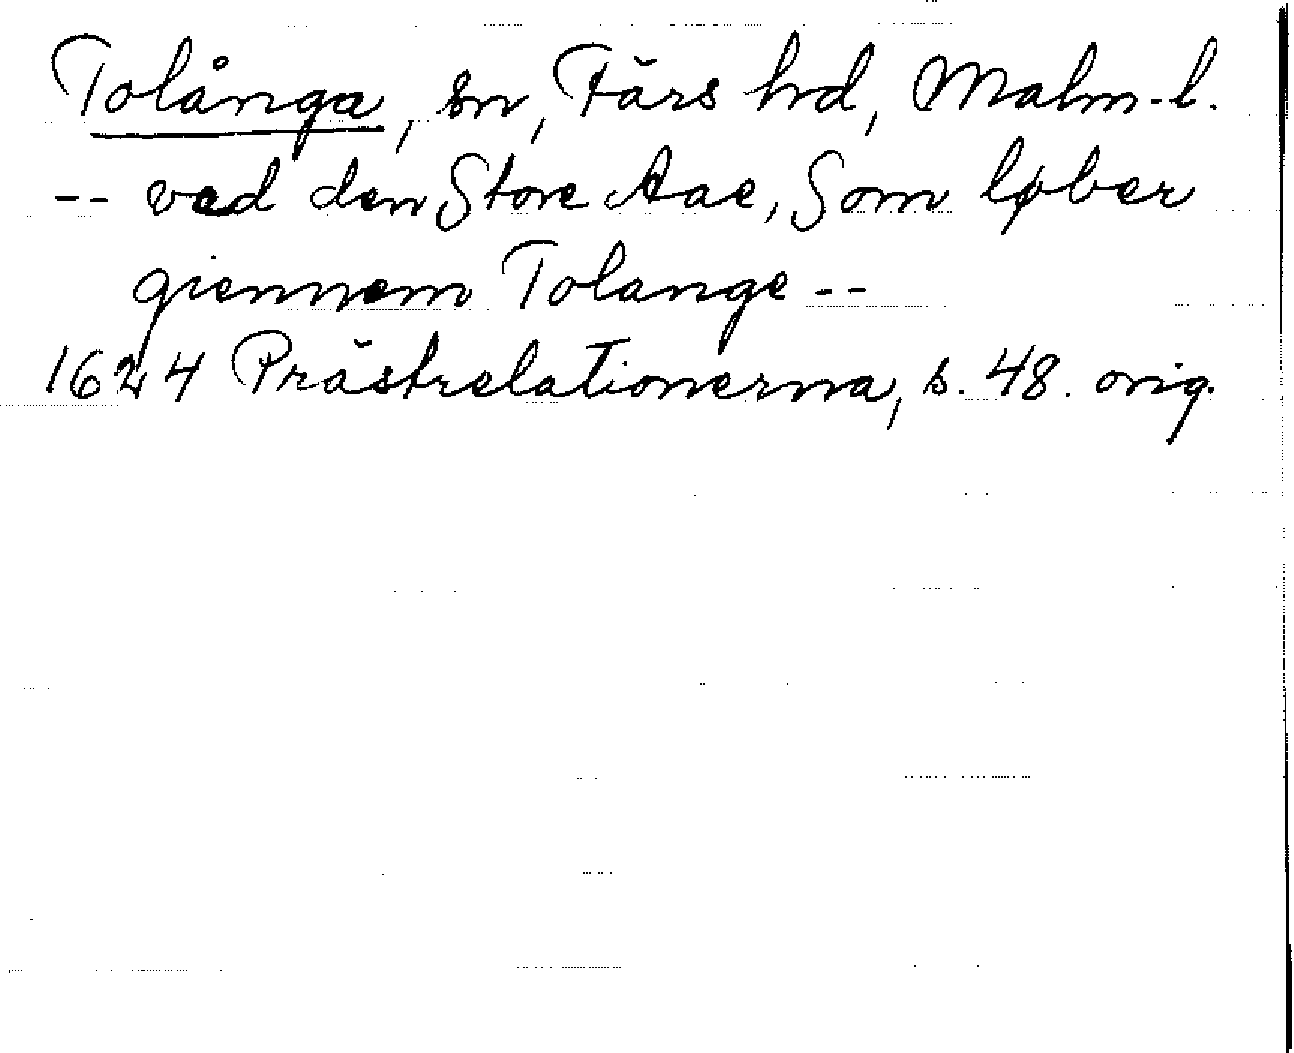 Tolånga, sn, Färs hd, Malm-l.
-- ved den Store Aae, Som løber
giennem Tolange --
1624 Prästrelationerna, s. 48. orig.